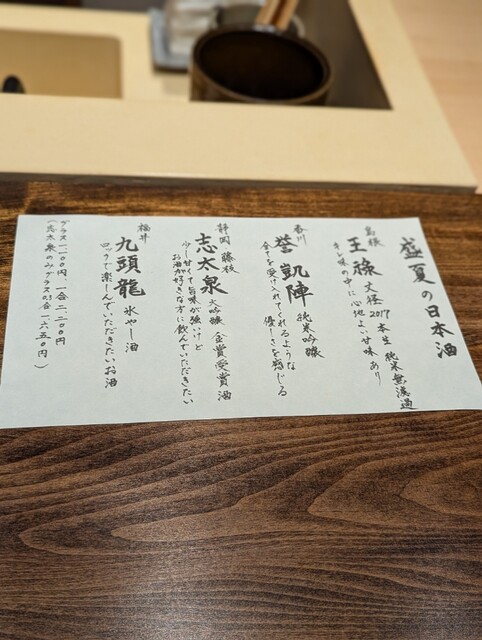 盛夏の日本酒
島根
王祿 丈径 2017 本生 純米無濾過
辛い味の中に心地よい甘味あり
香川
誉 凱陣 純米吟醸
全てを受け入れてくれるような
優しさを感じる
静岡 藤枝
志太泉 大吟醸 金賞受賞酒
少し甘くて旨味が強いけど
お酒が好きな方に飲んでいただきたい
福井
九頭龍 氷やし酒
ロックで楽しんでいただきたいお酒
グラス一、一〇〇円 一合二、二〇〇円
(志太泉のみグラス0.5合 一六五〇円)